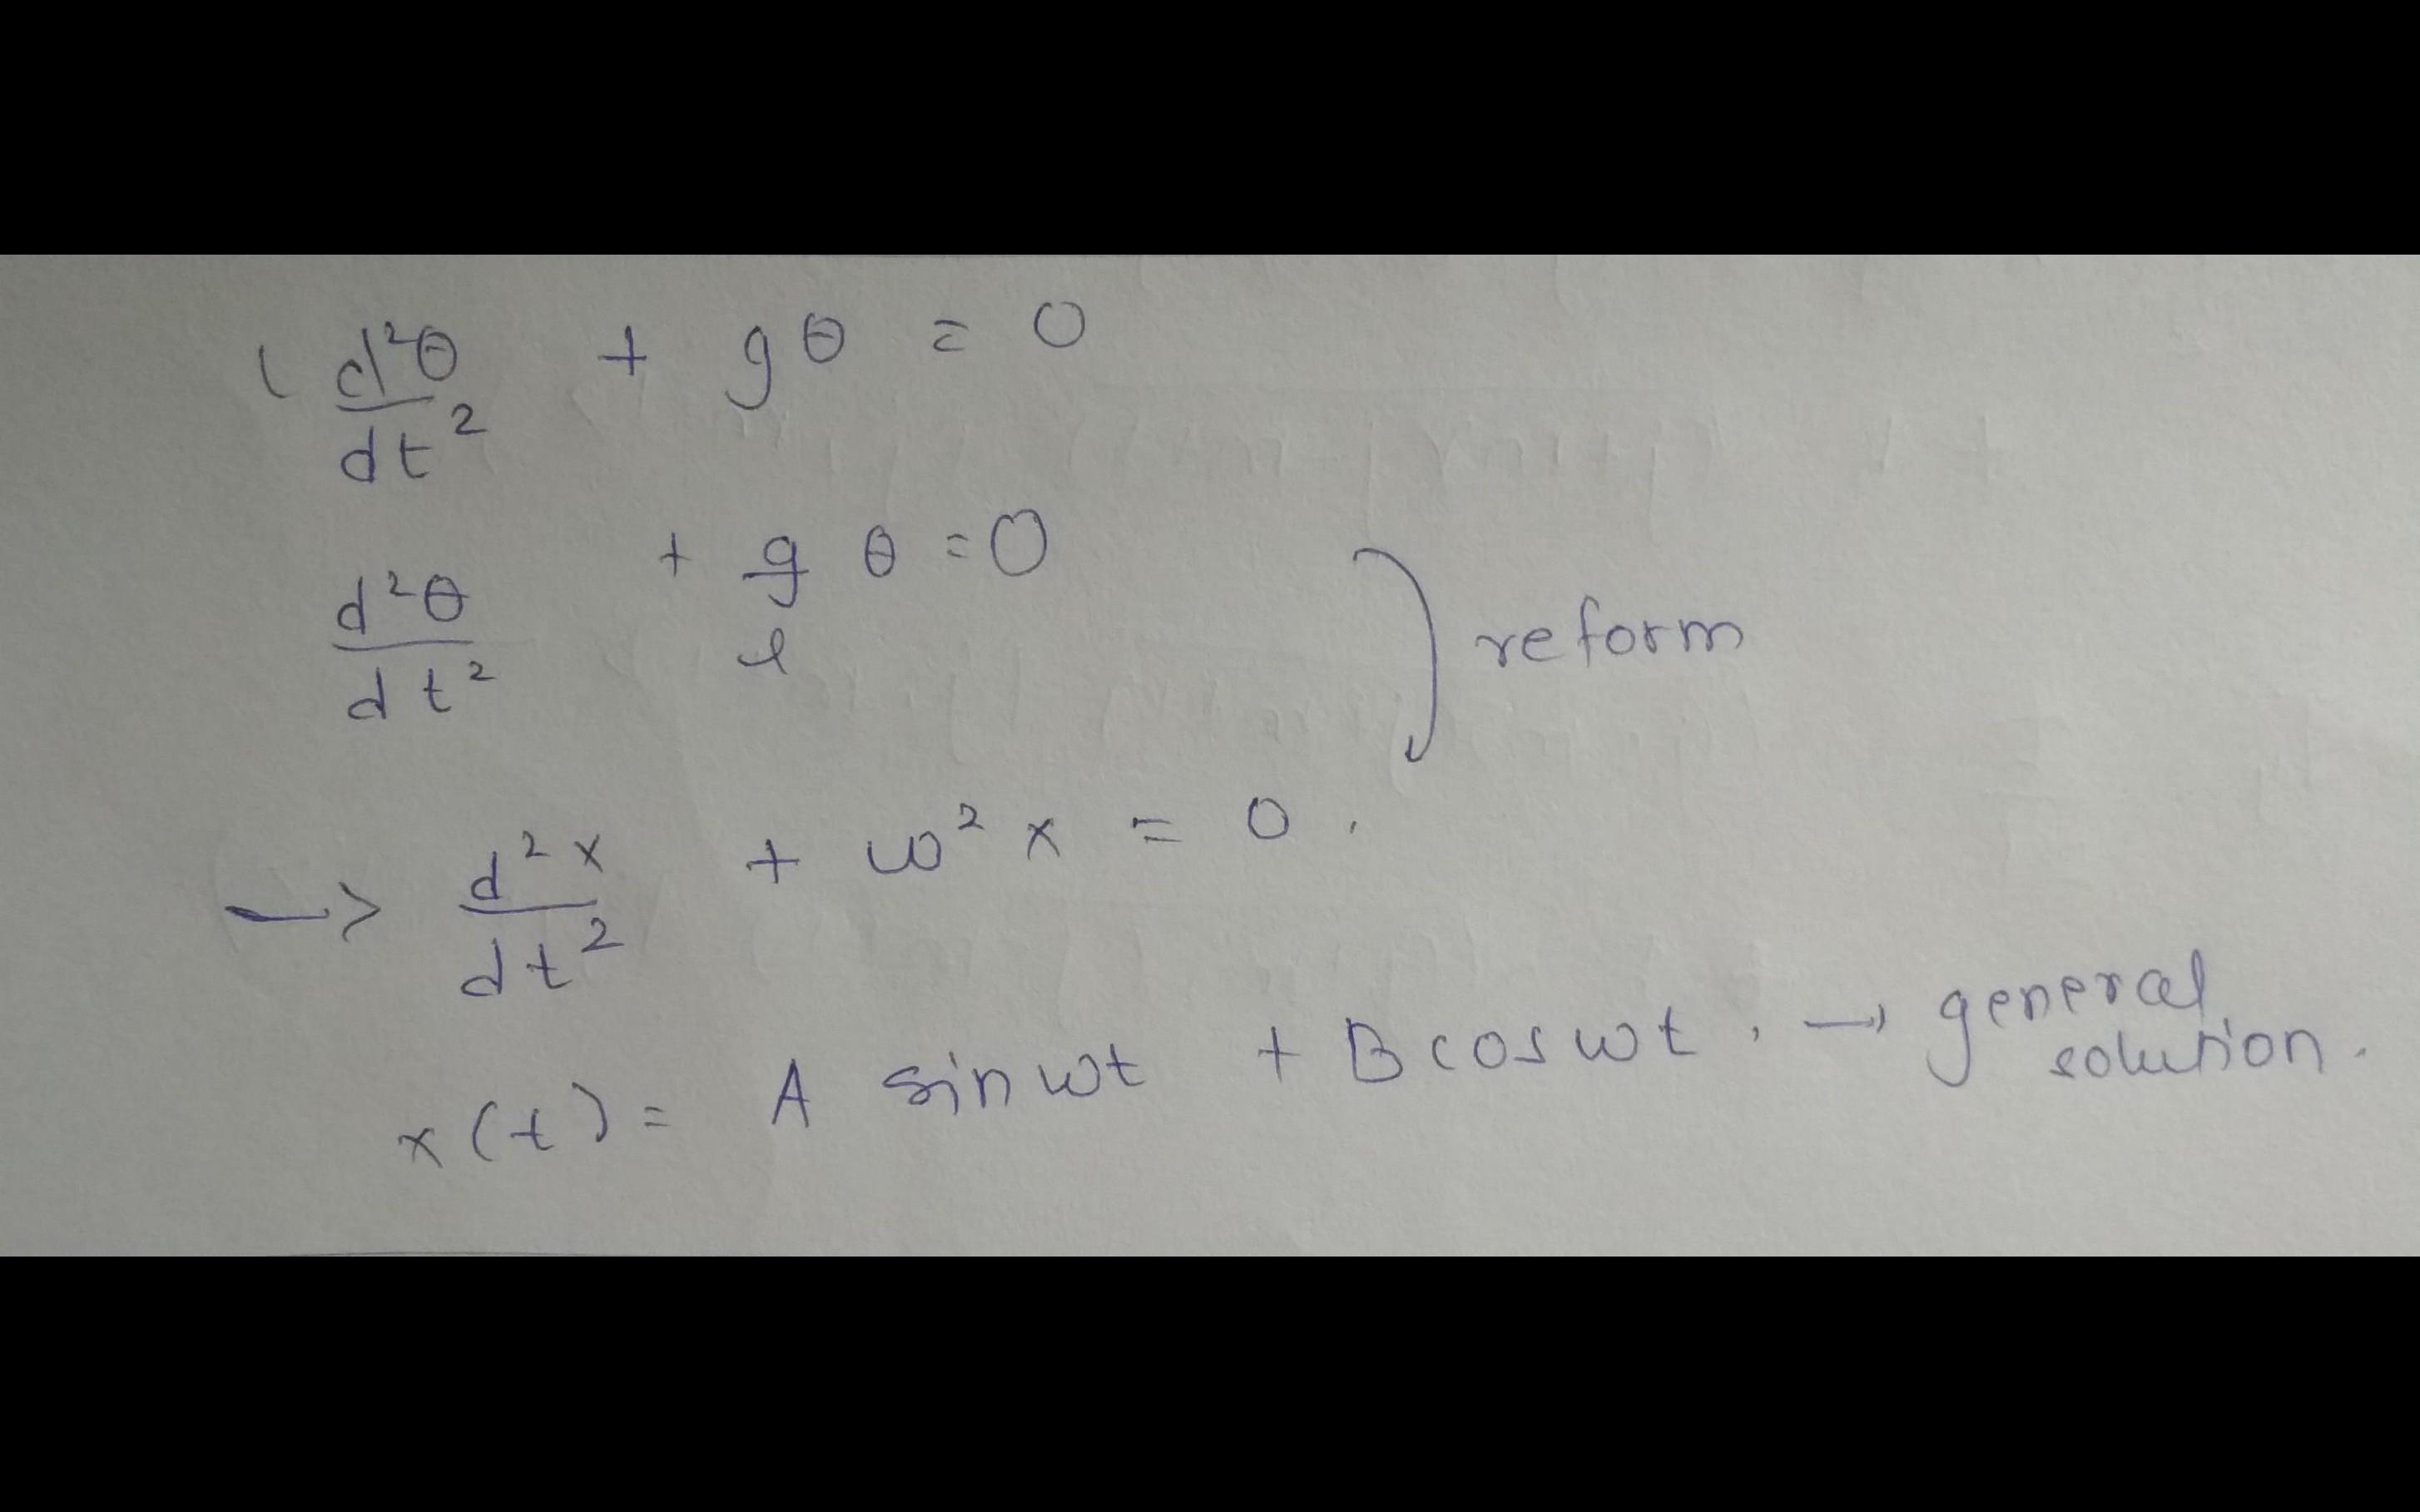 l d²θ/dt² + gθ = 0
d²θ/dt² + g/l θ = 0
reform
—> d²x/dt² + ω² x = 0 .
x(t) = A sin ωt + B cos ωt . → general solution.